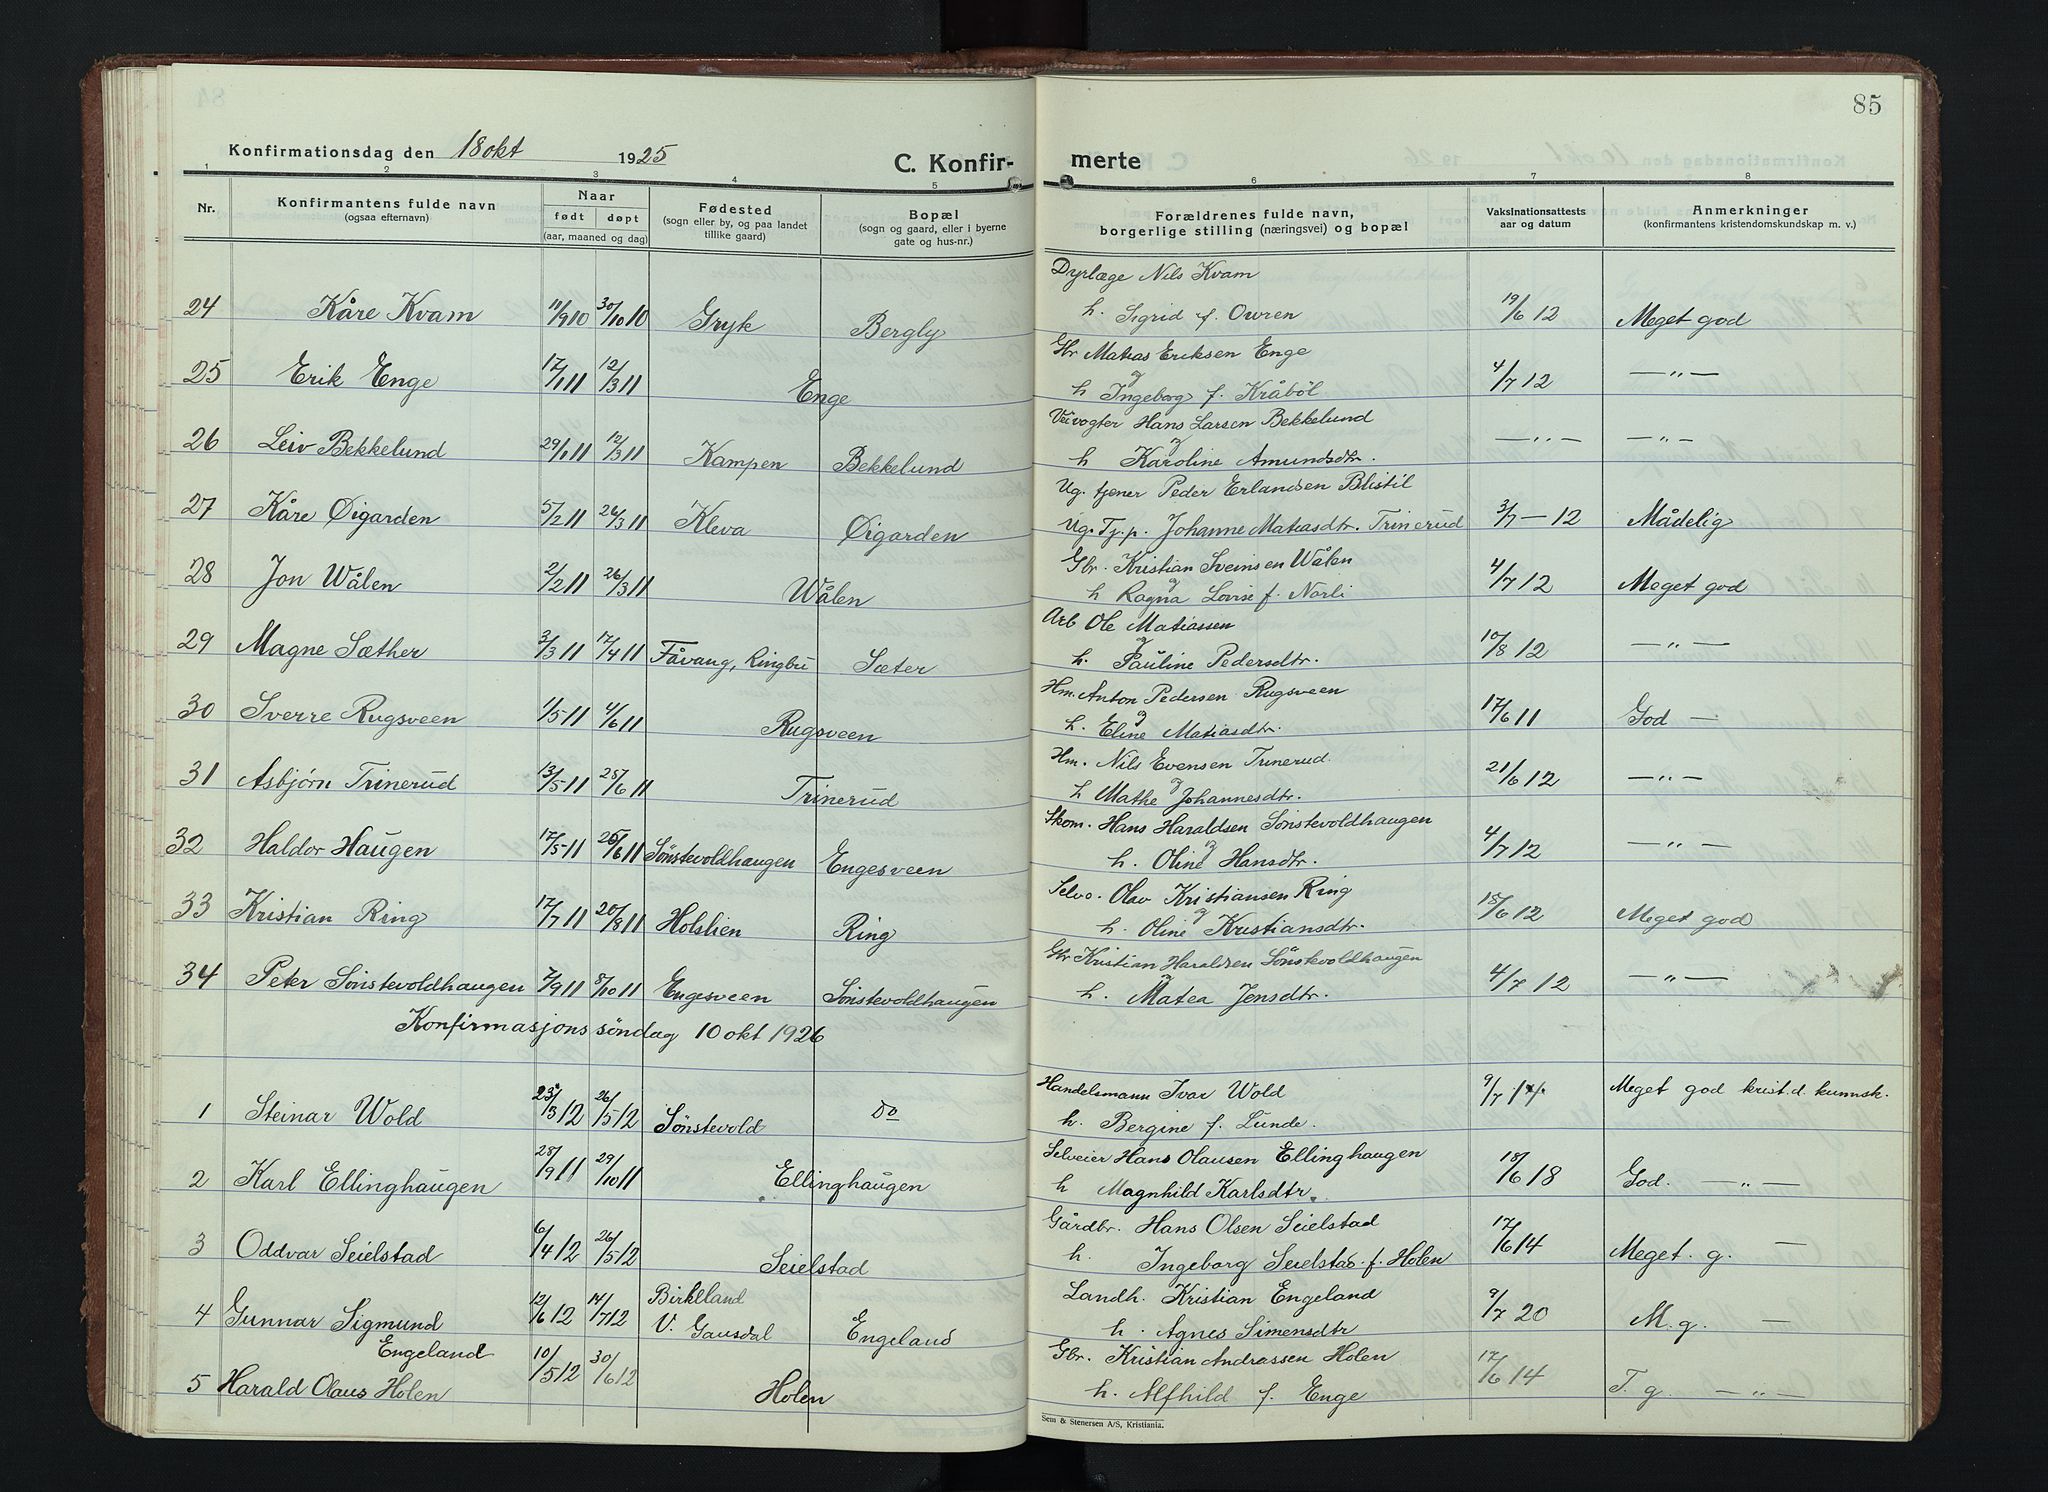 85
Konfirmationsdag den 18 okt 1925
C. Konfir- merte
1 2 3 4 5 6 7 8
Nr.
Konfirmantens fulde navn
(ogsaa efternavn)
Naar
født døpt
(aar, maaned og dag)
Fødested
(sogn eller by, og paa landet
tillike gaard)
Bopæl
(sogn og gaard, eller i byerne
gate og hus-nr.)
Forældrenes fulde navn,
borgerlige stilling (næringsvei) og bopæl
Vaksinationsattests
aar og datum
Anmerkninger
(konfirmantens kristendomskundskap m. v.)
Dyrlæge Nils Kvam
24 Kåre Kvam 11/9 10 30/10 10 Gryk Bergly h. Sigrid f. Owren 19/6 12 Meget god
Gbr Matias Eriksen Enge
25 Erik Enge 17/1 11 12/3 11 Enge og h Ingeborg f. Kråbøl 4/7 12 — „ —
Veivogter Hans Larsen Bekkelund
26 Leiv Bekkelund 29/1 11 12/3 11 Kampen Bekkelund og h Karoline Amundsdtr. — „ — — „ —
Ug. tjener Peder Erlandsen Blistil
27 Kåre Øigarden 5/2 11 26/3 11 Kleva Øigarden Ug. Tj. p. Johanne Matiasdtr. Trinerud 3/7 — 12 Mådelig
Gbr. Kristian Sveinsen Wålen
28 Jon Wålen 2/2 11 26/3 11 Wålen og h Ragna Lovise f. Nørli 4/7 12 Meget god
Arb Ole Matiassen
29 Magne Sæther 3/3 11 17/4 11 Fåvang, Ringbu Sæter og h. Pauline Pedersdtr. 10/8 12 — „ —
Hm. Anton Pedersen Rugsveen
30 Sverre Rugsveen 1/5 11 4/6 11 Rugsveen og h. Eline Matiasdtr. 17/6 11 God —
Hm. Nils Evensen Trinerud.
31 Asbjørn Trinerud 13/5 11 25/6 11 Trinerud og h Mathe Johannesdtr. 21/6 12 — „ —
Skom. Hans Haraldsen Sønstevoldhaugen
32 Haldor Haugen 17/5 11 25/6 11 Sønstevoldhaugen Engesveen og h. Oline Hansdtr. 4/7 12 — „ —
Selvo. Olav Kristiansen Ring
33 Kristian Ring 17/7 11 20/8 11 Holslien Ring og h. Oline Kristiansdtr. 18/6 12 Meget god
Gbr Kristian Haraldsen Sønstevoldhaugen
34 Peter Sønstevoldhaugen 7/9 11 8/10 11 Engesveen Sønstevoldhaugen og h. Matea Jensdtr. 4/7 12 — „ —
Konfirmasjonssøndag 10 okt 1926
Handelsmann Ivar Wold
1 Steinar Wold 23/3 12 26/5 12 Sønstevold do h. Bergine f. Lunde. 9/7 14. Meget god krist.d. kunnsk.
Selveier Hans Olausen Ellinghaugen
2 Karl Ellinghaugen 28/9 11 29/10 11 Ellinghaugen h Magnhild Karlsdtr. 18/6 18 God. — „ —
Gårdbr. Hans Olsen Seielstad
3 Oddvar Seielstad 6/4 12 26/5 12 Seielstad h. Ingeborg Seielstad f. Holen 17/6 14 Meget. g. —
Birkeland Landh. Kristian Engeland
4 Gunnar Sigmund 12/6 12 14/7 12 V. Gausdal Engeland h. Agnes Simensdtr 9/7 20 M. g. —
Engeland
Gbr. Kristian Andrassen Holen
5 Harald Olaus Holen 10/5 12 30/6 12 Holen h. Alfhild f. Enge 17/6 14 T. g. — „ —
Sem & Stenersen A/S, Kristiania.